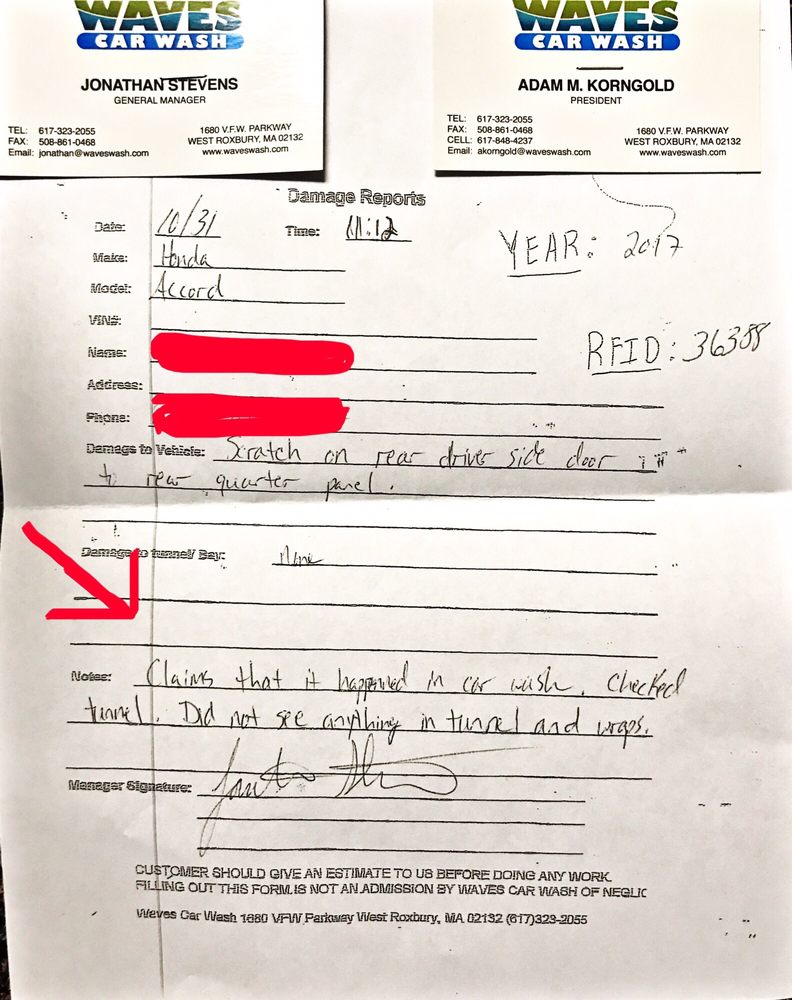 WAVES
CAR WASH
JONATHAN STEVENS
GENERAL MANAGER
TEL: 617-323-2055
FAX: 508-861-0468
Email: jonathan@waveswash.com
1680 V.F.W. PARKWAY
WEST ROXBURY, MA 02132
www.waveswash.com
WAVES
CAR WASH
ADAM M. KORNGOLD
PRESIDENT
TEL: 617-323-2055
FAX: 508-861-0468
CELL: 617-848-4237
Email: akorngold@waveswash.com
1680 V.F.W. PARKWAY
WEST ROXBURY, MA 02132
www.waveswash.com
Damage Reports
Date: 10/31 Time: 11:12
YEAR: 2017
Make: Honda
Model: Accord
VIN#:
RFID: 36388
Name:
Address:
Phone:
Damage to Vehicle: Scratch on rear driver side door
to rear quarter panel.
Damage to tunnel/ Bay: None
Notes: Claims that it happened in car wash. Checked
tunnel. Did not see anything in tunnel and wraps.
Manager Signature:
CUSTOMER SHOULD GIVE AN ESTIMATE TO US BEFORE DOING ANY WORK.
FILLING OUT THIS FORM IS NOT AN ADMISSION BY WAVES CAR WASH OF NEGLIC
Waves Car Wash 1680 VFW Parkway West Roxbury, MA 02132 (617)323-2055